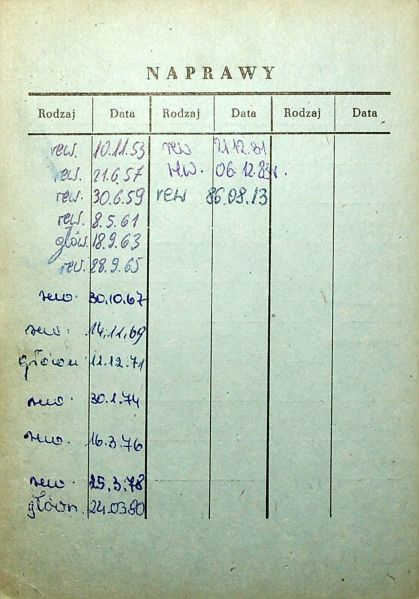 NAPRAWY
Rodzaj Data Rodzaj Data Rodzaj Data
rew. 10.11.53 rew 21.12.81
rew. 21.6.57 rew. 06.12.83r.
rew. 30.6.59 rew 86.08.13
rew. 8.5.61
głów. 18.9.63
rew. 28.9.65
rew. 30.10.67
rew. 14.11.69
główn. 12.12.71
rew. 30.1.74
rew. 16.3.76
rew. 25.3.78
główn. 24.03.80